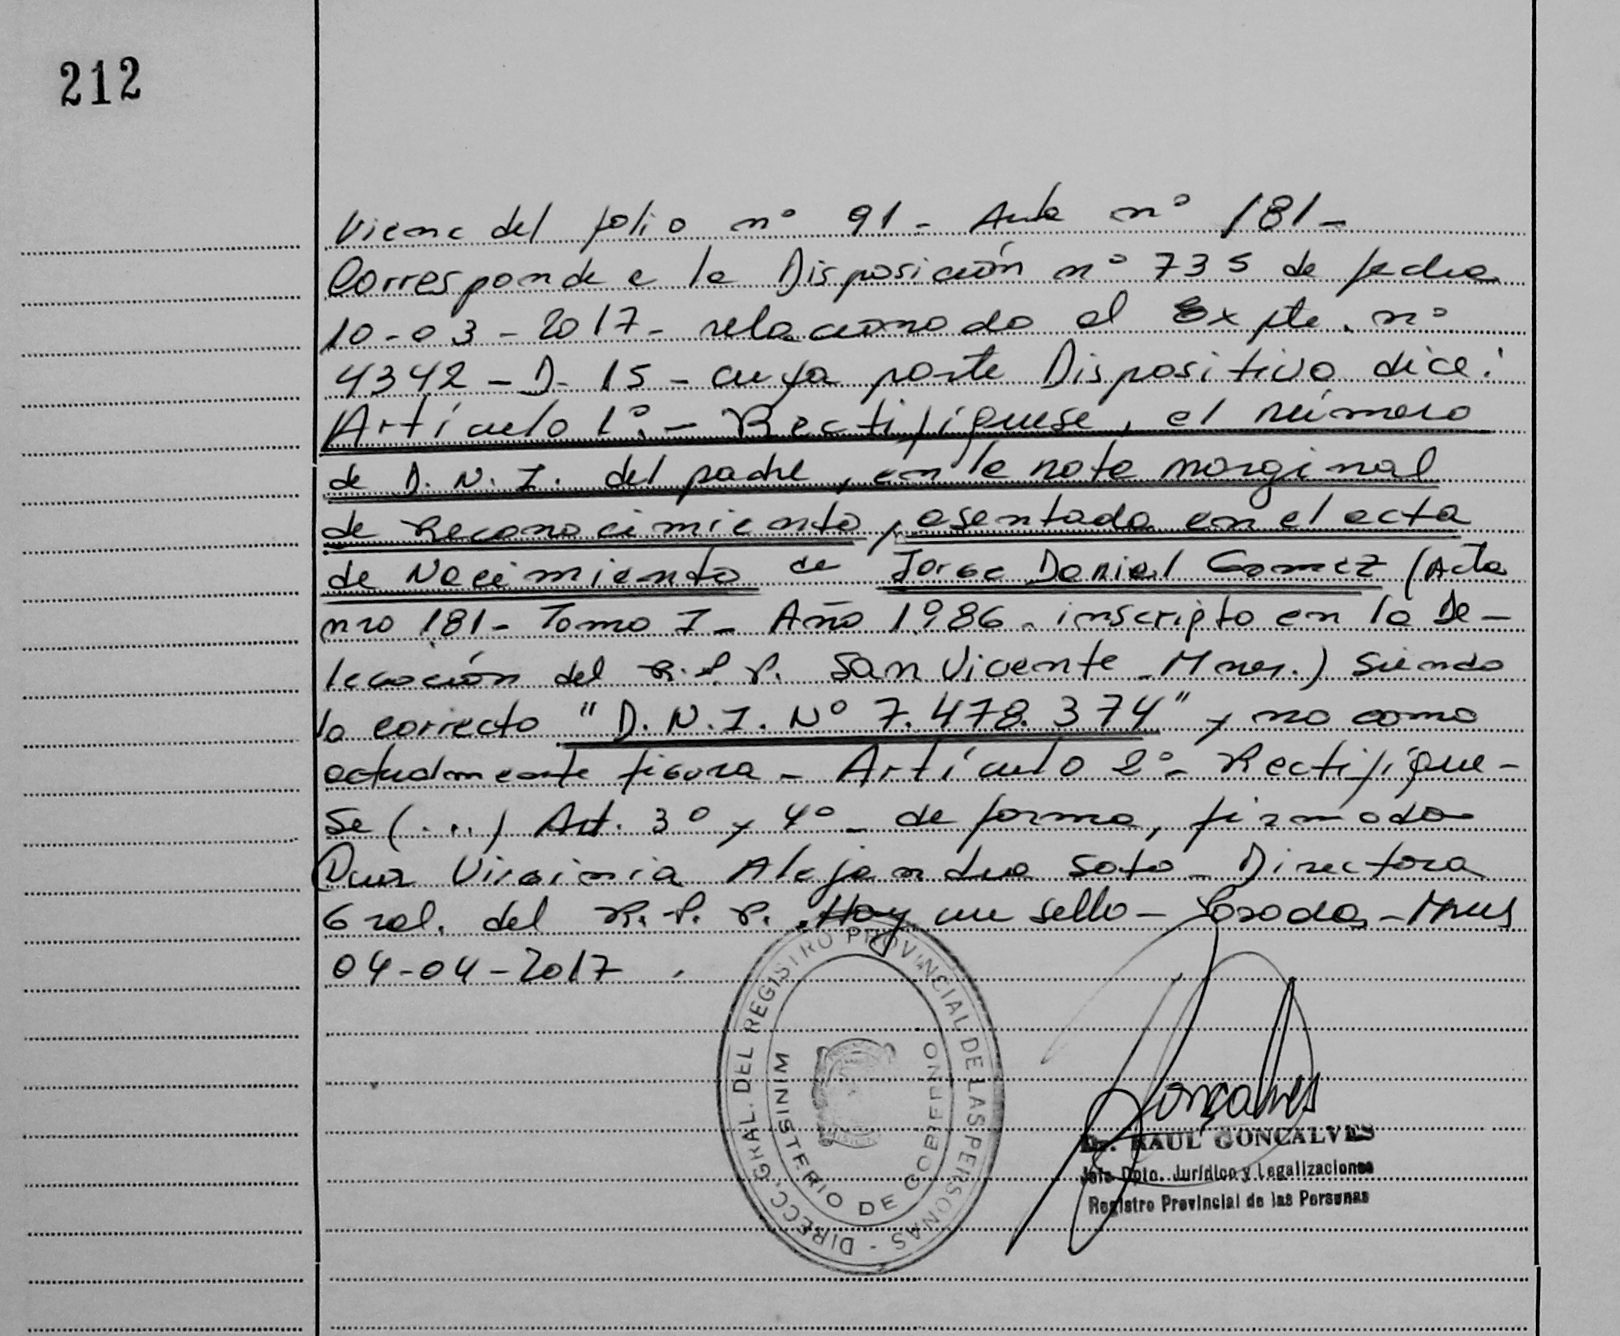 212
Viene del folio nº 91 - Acta nº 181 -
Corresponde a la Disposición nº 735 de fecha
10-03-2017- relacionado al Expte. nº
4342 - D- 15 - cuya parte Dispositiva dice:
Artículo 1º.- Rectifíquese, el número
de D. N. I. del padre, en la nota marginal
de Reconocimiento, asentada en el acta
de Nacimiento de Jorge Daniel Gomez (Acta
nro 181- Tomo I - Año 1986 - inscripto en la De-
legación del R. P. P. San Vicente - Mnes.) Siendo
lo correcto "D. N. I. Nº 7.478.374" y no como
actualmente figura - Artículo 2º- Rectifíque-
se (...) Art. 3º y 4º - de forma, firmado
Dra Virginia Alejandra Soto - Directora
Gral. del R. P. P. Hay un sello - Posadas - Mnes
04-04-2017.
DIRECC. GRAL. DEL REGISTRO PROVINCIAL DE LAS PERSONAS -
MINISTERIO DE GOBIERNO
Gonçalves
Dr. RAUL GONCALVES
Jefe Dpto. Jurídico y Legalizaciones
Registro Provincial de las Personas